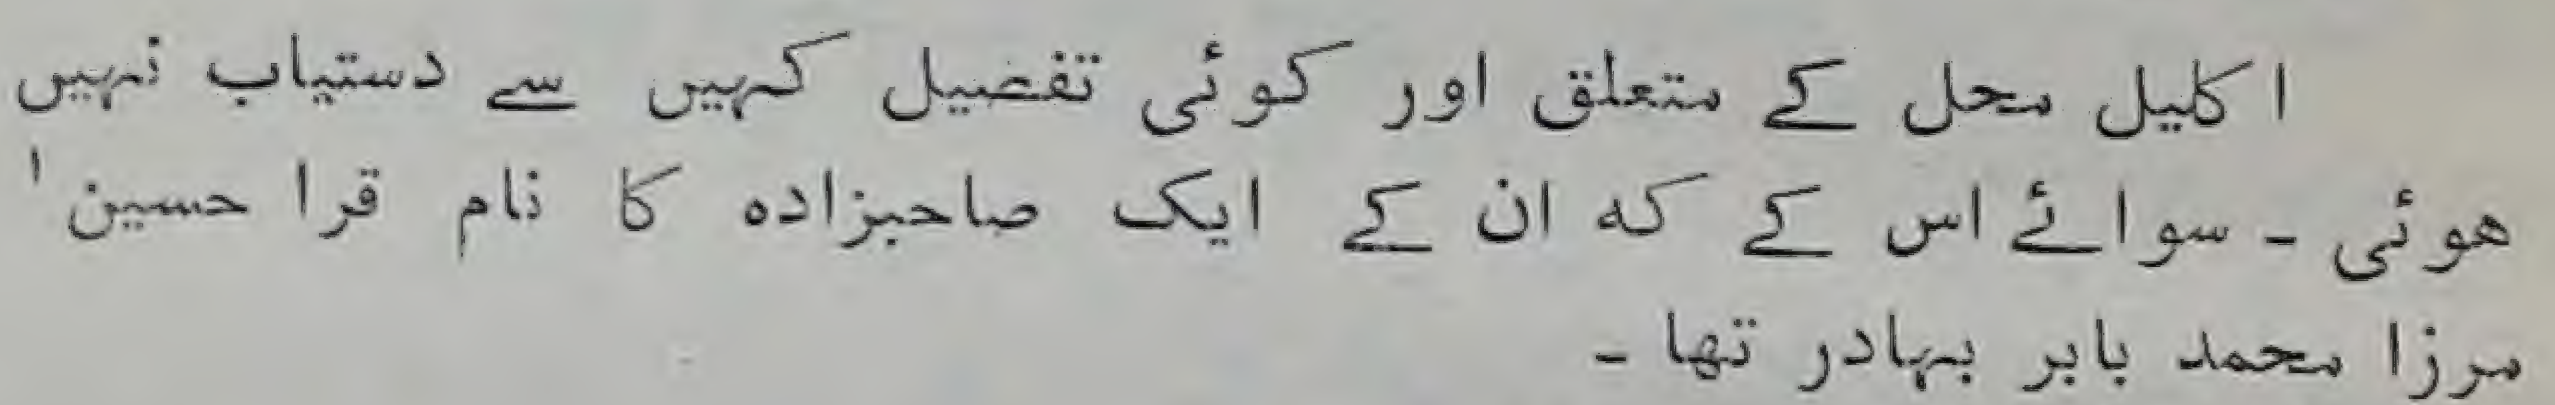 اکلیل محل کے متعلق اور کوئی تفصیل کہیں سے دستیاب نہیں
ہوئی ۔ سوائے اس کے کہ ان کے ایک صاحبزادہ کا نام قرا حسین ۱
مرزا محمد بابر بہادر تھا ۔